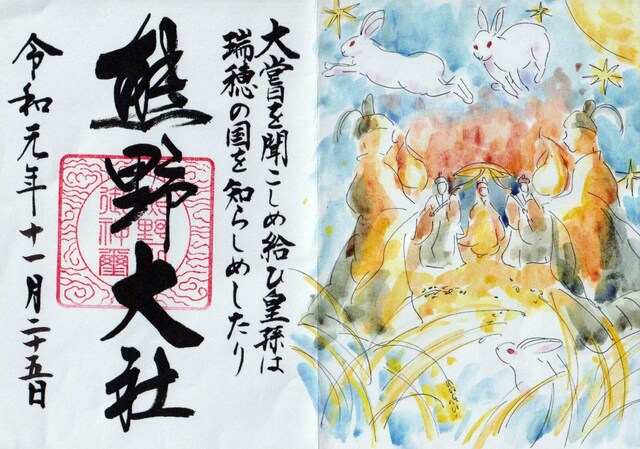 大嘗を聞こしめ給ひ皇孫は
瑞穂の国を知らしめしたり
熊野大社
令和元年十一月二十五日